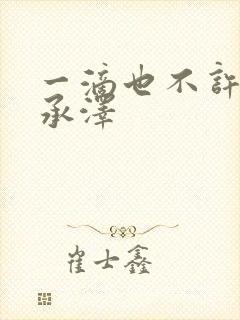 一滴也不许
承泽
崔士鑫